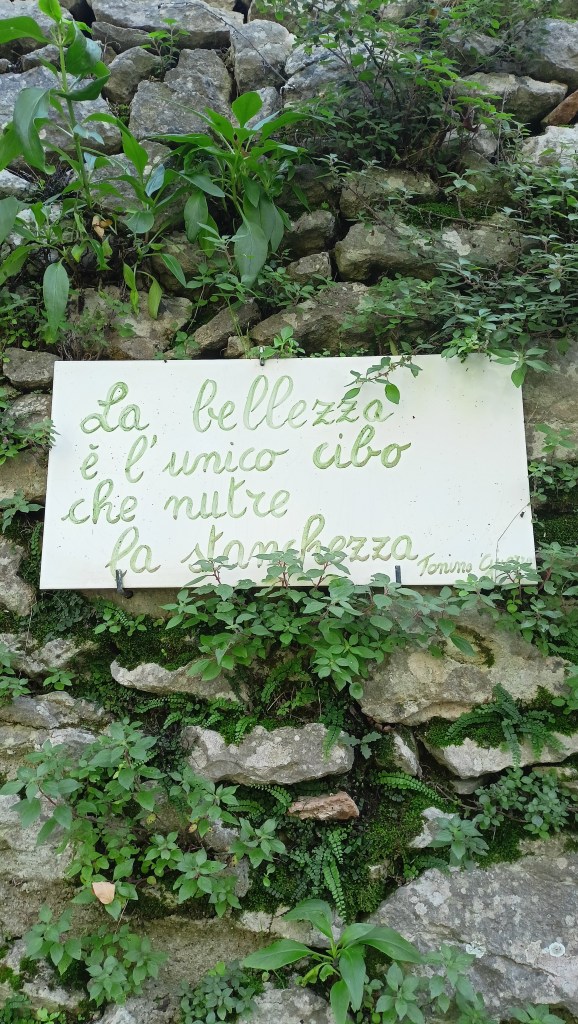 La bellezza
è l'unico cibo
che nutre
la stanchezza
Tonino